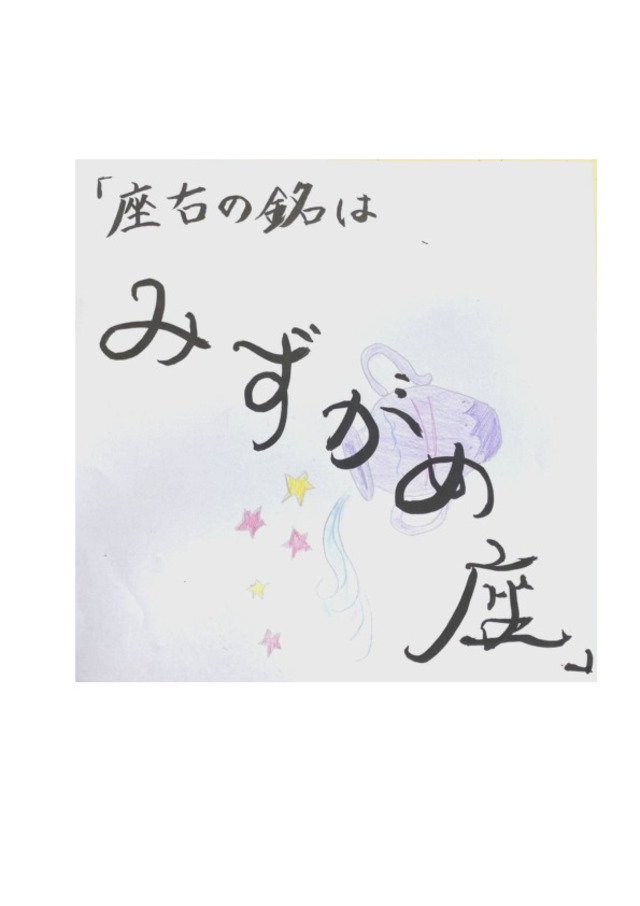 「座右の銘は
みずがめ座」